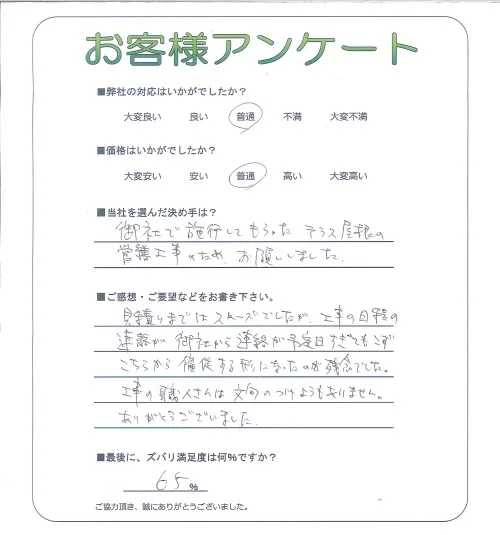 お客様アンケート
■弊社の対応はいかがでしたか？
大変良い 良い 普通 不満 大変不満
■価格はいかがでしたか？
大変安い 安い 普通 高い 大変高い
■当社を選んだ決め手は？
御社で施行してもらった テラス屋根の
営繕工事のため、お願いしました。
■ご感想・ご要望などをお書き下さい。
見積りまではスムーズでしたが、工事の日程の
連絡が御社から連絡が予定日すぎてもこず
こちらから催促する形になったのが残念でした。
工事の職人さんは文句のつけようもありません。
ありがとうございました。
■最後に、ズバリ満足度は何%ですか？
65%
ご協力頂き、誠にありがとうございました。